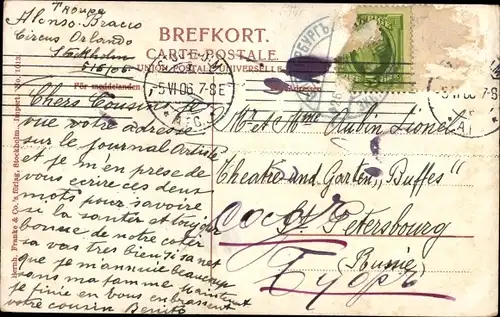 Troupe
Alonso Bracco
Circus Orlando
Stockholm
5/6/06
BREFKORT.
CARTE POSTALE
UNION POSTALE UNIVERSELLE
För meddelanden
5 VI 06 7-8E
5 VI 06 7-8
Chers Cousins Je
vue votre adresse
sur le journal Artiste
et je m'en prese de
vous ecrire ces deux
mots pour savoire
si la santa et toujour
bonne de notre coter
sa vas tres bien Ji sa net
que je m'annuie beaucoup
sans ma famme Maintenent
je finie en vous enbrassent
votre cousin Benito
Mr et Mme Aubin Lionel
Theatre and Garten, Buffes"
St. Petersbourg
(Russie)
Bernh. Franke & Co.'s förlag, Stockholm.